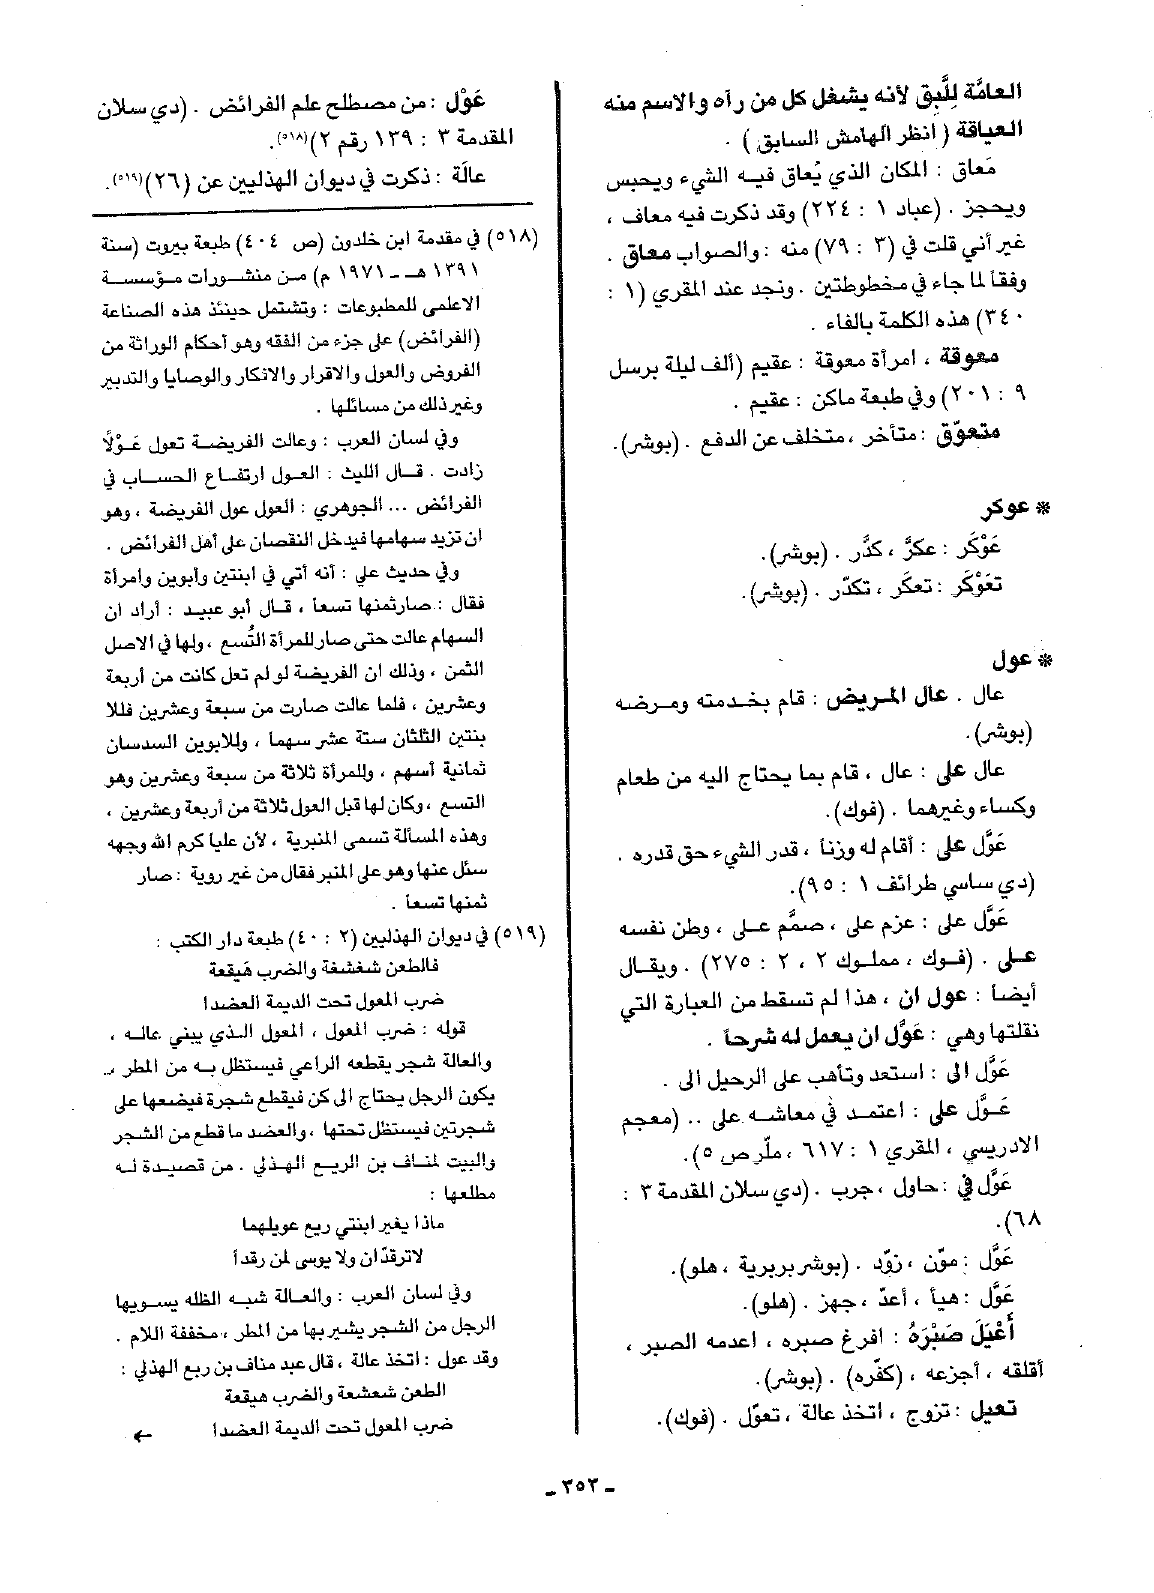 العامَّة لِلَّبِق لأنه يشغل كل من رآه والاسم منه
العياقة ( انظر الهامش السابق ) .
مَعاق : المكان الذي يُعاق فيه الشيء ويحبس
ويحجز . (عباد ١ : ٢٢٤) وقد ذكرت فيه معاف ،
غير أني قلت في (٣ : ٧٩) منه : والصواب معاق .
وفقاً لما جاء في مخطوطتين . ونجد عند المقري (١ :
٣٤٠) هذه الكلمة بالفاء .
معوقة ، امرأة معوقة : عقيم (ألف ليلة برسل
٩ : ٢٠١) وفي طبعة ماكن : عقيم .
متعوّق : متأخر ، متخلف عن الدفع . (بوشر).
* عوكر
عَوْكَر : عكَّر ، كدَّر . (بوشر).
تعَوْكَر : تعكَّر ، تكدّر . (بوشر).
* عول
عال . عال المريض : قام بخدمته ومرضه
(بوشر).
عال على : عال ، قام بما يحتاج اليه من طعام
وكساء وغيرهما . (فوك).
عَوَّل على : أقام له وزناً ، قدر الشيء حق قدره .
(دي ساسي طرائف ١ : ٩٥).
عَوَّل على : عزم على ، صمَّم على ، وطن نفسه
على . (فوك ، مملوك ٢ ، ٢ : ٢٧٥) . ويقال
أيضاً : عول ان ، هذا لم تسقط من العبارة التي
نقلتها وهي : عَوَّل ان يعمل له شرحاً .
عَوَّل الى : استعد وتأهب على الرحيل الى .
عَوَّل على : اعتمد في معاشه على .. (معجم
الادريسي ، المقري ١ : ٦١٧ ، ملّر ص ٥).
عَوَّل في : حاول ، جرب . (دي سلان المقدمة ٣ :
٦٨).
عَوَّل : موّن ، زوّد . (بوشر بربرية ، هلو).
عَوَّل : هيأ ، أعدّ ، جهز . (هلو).
أَعْيَلَ صَبْرَهُ : افرغ صبره ، اعدمه الصبر ،
أقلقه ، أجزعه ، (كفّره) . (بوشر).
تعيل : تزوج ، اتخذ عالة ، تعوّل . (فوك).
عَوْل : من مصطلح علم الفرائض . (دي سلان
المقدمة ٣ : ١٣٩ رقم ٢)(٥١٨).
عالَة : ذكرت في ديوان الهذليين عن (٢٦)(٥١٩).
(٥١٨) في مقدمة ابن خلدون (ص ٤٠٤) طبعة بيروت (سنة
١٣٩١ هـ ــ ١٩٧١ م) من منشورات مؤسسة
الاعلمى للمطبوعات : وتشتمل حينئذ هذه الصناعة
(الفرائض) على جزء من الفقه وهو أحكام الوراثة من
الفروض والعول والاقرار والانكار والوصايا والتدبير
وغير ذلك من مسائلها .
وفي لسان العرب : وعالت الفريضة تعول عَوْلًا
زادت . قال الليث : العول ارتفاع الحساب في
الفرائض ... الجوهري : العول عول الفريضة ، وهو
ان تزيد سهامها فيدخل النقصان على أهل الفرائض .
وفي حديث علي : أنه أتي في ابنتين وأبوين وامرأة
فقال : صار ثمنها تسعاً ، قال أبو عبيد : أراد ان
السهام عالت حتى صار للمرأة التُسع ، ولها في الاصل
الثمن ، وذلك ان الفريضة لو لم تعل كانت من أربعة
وعشرين ، فلما عالت صارت من سبعة وعشرين فللا
بنتين الثلثان ستة عشر سهماً ، وللابوين السدسان
ثمانية أسهم ، وللمرأة ثلاثة من سبعة وعشرين وهو
التسع ، وكان لها قبل العول ثلاثة من أربعة وعشرين ،
وهذه المسألة تسمى المنبرية ، لأن عليا كرم الله وجهه
سئل عنها وهو على المنبر فقال من غير روية : صار
ثمنها تسعاً .
(٥١٩) في ديوان الهذليين (٢ : ٤٠) طبعة دار الكتب :
فالطعن شغشغة والضرب هَيقعة
ضرب المعول تحت الديمة العضدا
قوله : ضرب المعول ، المعول الذي يبني عاله ،
والعالة شجر يقطعه الراعي فيستظل به من المطر ــ
يكون الرجل يحتاج الى كن فيقطع شجرة فيضعها على
شجرتين فيستظل تحتها ، والعضد ما قطع من الشجر
والبيت لمناف بن الربع الهذلي . من قصيدة له
مطلعها :
ماذا يغير ابنتي ربع عويلهما
لا ترقدّان ولا يوسى لمن رقدا
وفي لسان العرب : والعالة شبه الظله يسويها
الرجل من الشجر يشير بها من المطر ، مخففة اللام .
وقد عول : اتخذ عالة ، قال عبد مناف بن ربع الهذلي :
الطعن شعشعة والضرب هيقعة
ضرب المعول تحت الديمة العضدا ←
ـ ٣٥٣ ـ